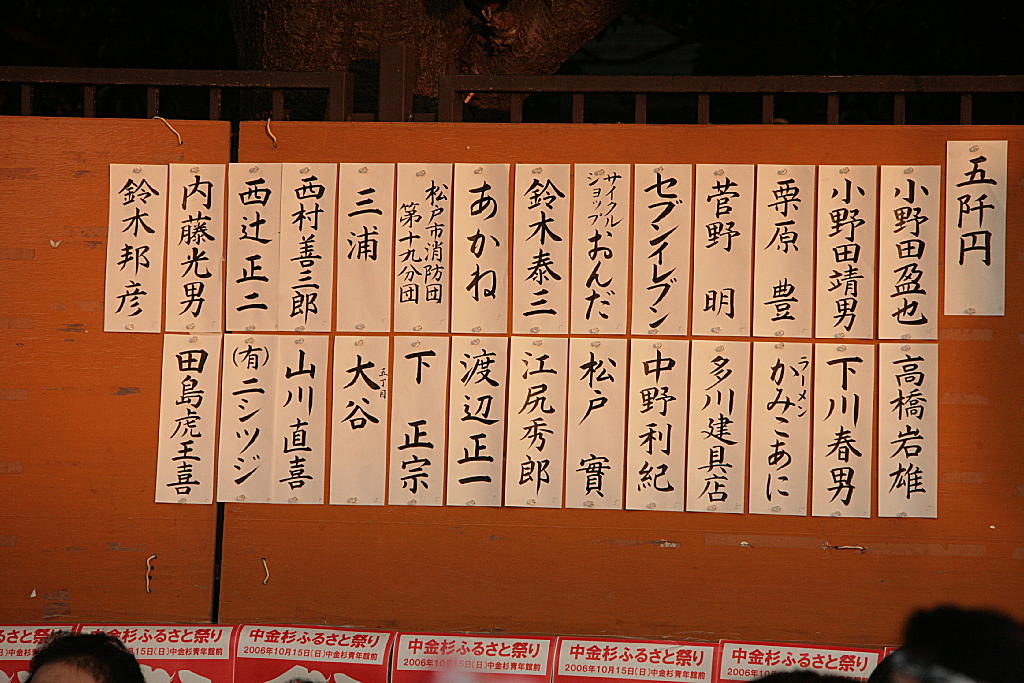 五阡円
小野田盈也
小野田靖男
栗原 豊
菅野 明
セブンイレブン
サイクル
ショップ
おんだ
鈴木泰三
あかね
松戸市消防団
第十九分団
三浦
西村善三郎
西辻正二
内藤光男
鈴木邦彦
高橋岩雄
下川春男
ラーメン
かみこあに
多川建具店
中野利紀
松戸 實
江尻秀郎
渡辺正一
下 正宗
五丁目
大谷
山川直喜
(有)ニシツジ
田島虎王喜
ふるさと祭り
15日(日)中金杉青年館前
中金杉ふるさと祭り
15日(日)中金杉青年館前
中金杉ふるさと祭り
2006年10月15日(日)中金杉青年館前
中金杉ふるさと祭り
2006年10月15日(日)中金杉青年館前
中金杉ふるさと祭り
2006年10月15日(日)中金杉青年館前
中金杉ふるさと祭り
2006年10月15日(日)中金杉青年館前